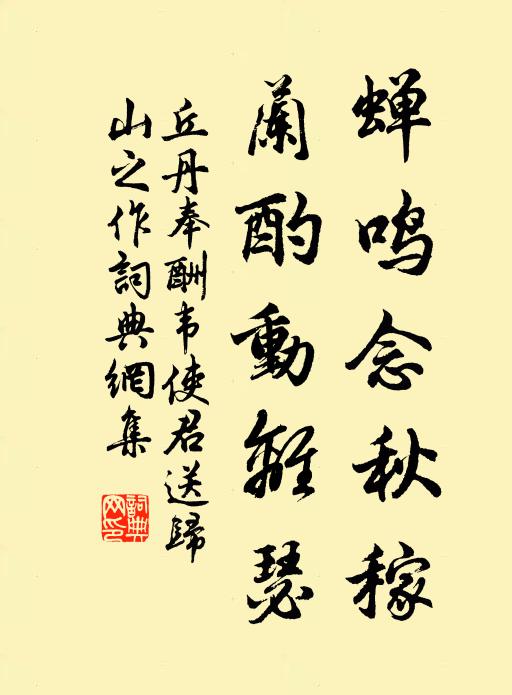 蝉鸣念秋稼
蘭酌動離瑟
丘丹奉酬韦使君送歸
山之作詞典網集
詞典网印